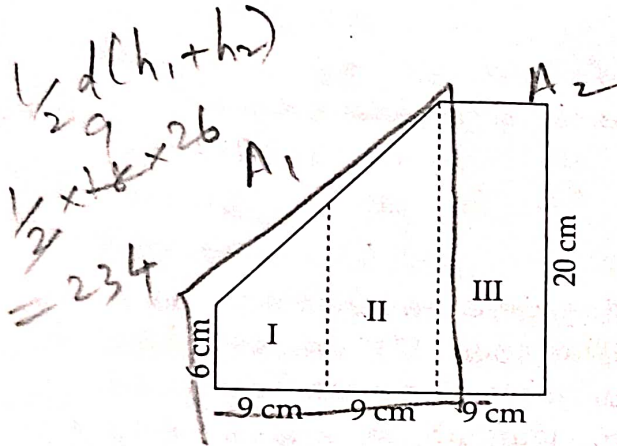 ½ d(h₁+h₂)
9
½ × 18 × 26
= 234
A₁
A₂
I
II
III
6 cm
20 cm
9 cm
9 cm
9 cm